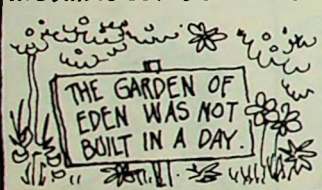 THE GARDEN OF
EDEN WAS NOT
BUILT IN A DAY.